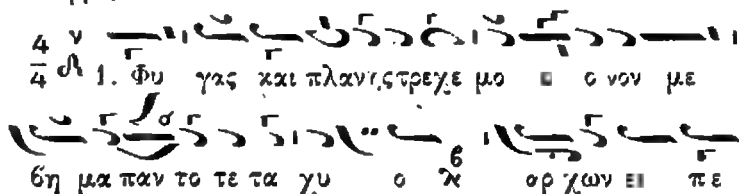 4/4 1. Φυ γας και πλανης τρεχε μο ο νον με
βη μα παν το τε τα χυ ο ορ χων ει πε